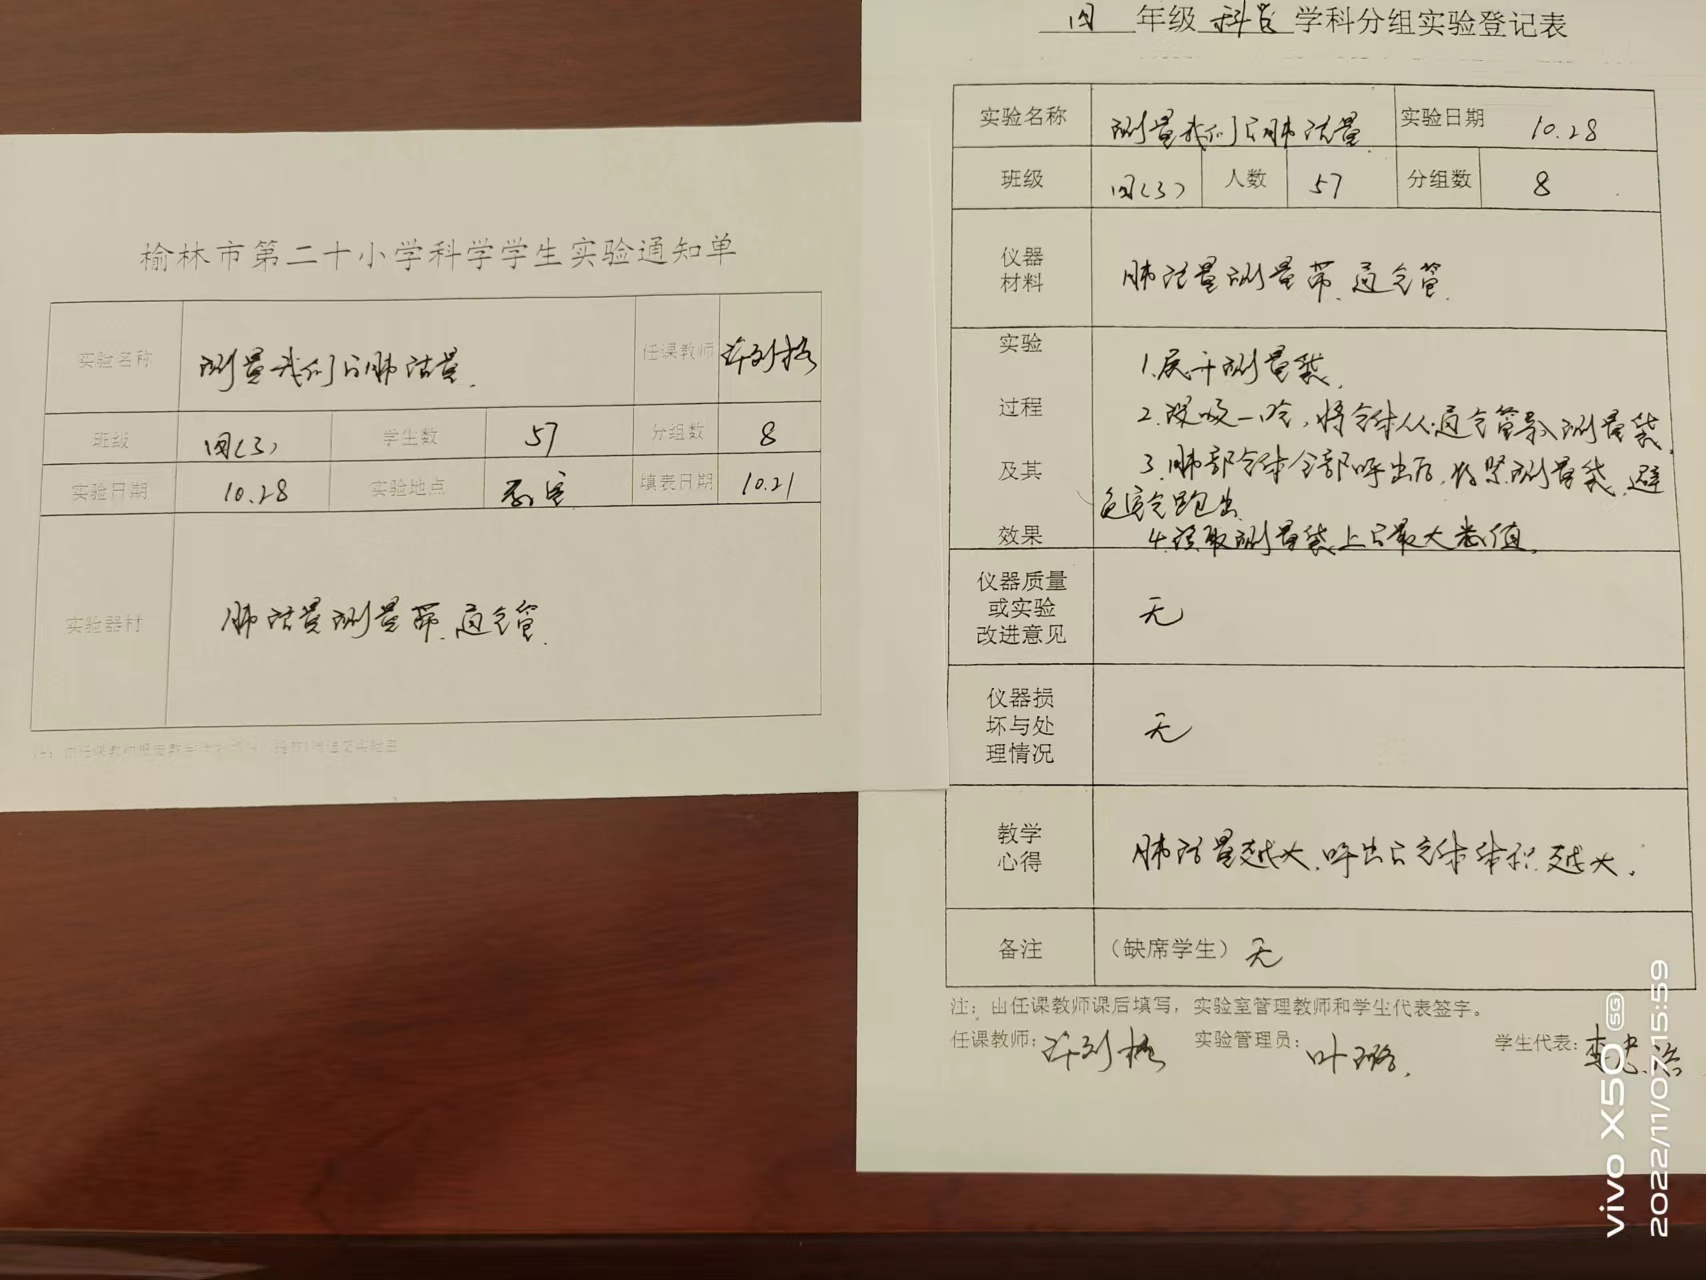 榆林市第二十小学科学学生实验通知单
实验名称 测量我们的肺活量. 任课教师
班级 四(3) 学生数 57 分组数 8
实验日期 10.28 实验地点 教室 填表日期 10.21
实验器材 肺活量测量带、通气管.
四 年级 科学 学科分组实验登记表
实验名称 测量我们的肺活量. 实验日期 10.28
班级 四(3) 人数 57 分组数 8
仪器材料 肺活量测量带、通气管.
实验过程及其效果
1.展开测量袋.
2.深吸一口气,将气体从通气管导入测量袋.
3.肺部气体全部呼出后,将紧测量袋,避
免空气跑出.
4.读取测量袋上的最大数值.
仪器质量或实验改进意见 无
仪器损坏与处理情况 无
教学心得 肺活量越大,呼出的气体体积越大.
备注 (缺席学生) 无
注:由任课教师课后填写,实验室管理教师和学生代表签字。
任课教师: 实验管理员:叶璐. 学生代表:李思涵
vivo X50 5G
2022/11/07 15:59